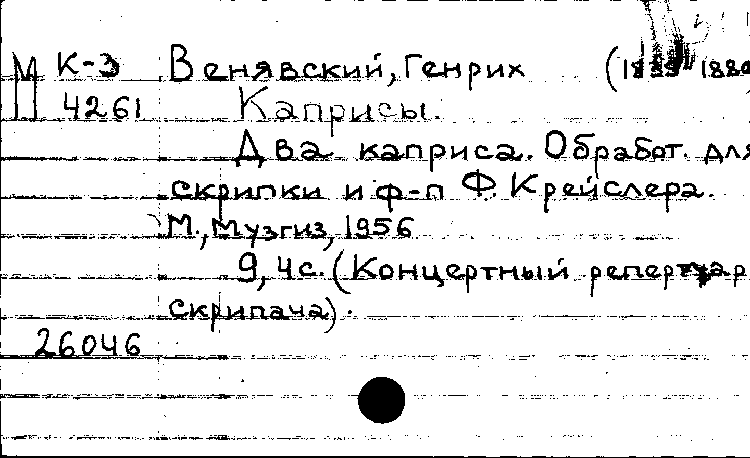 М К-Э Венявский, Генрих (1835 1880
4261 Каприсы.
Два каприса. Обработ. для
скрипки и ф-п Ф. Крейслера.
М., Музгиз, 1956
9, 4с. (Концертный репертуар
скрипача).
26046